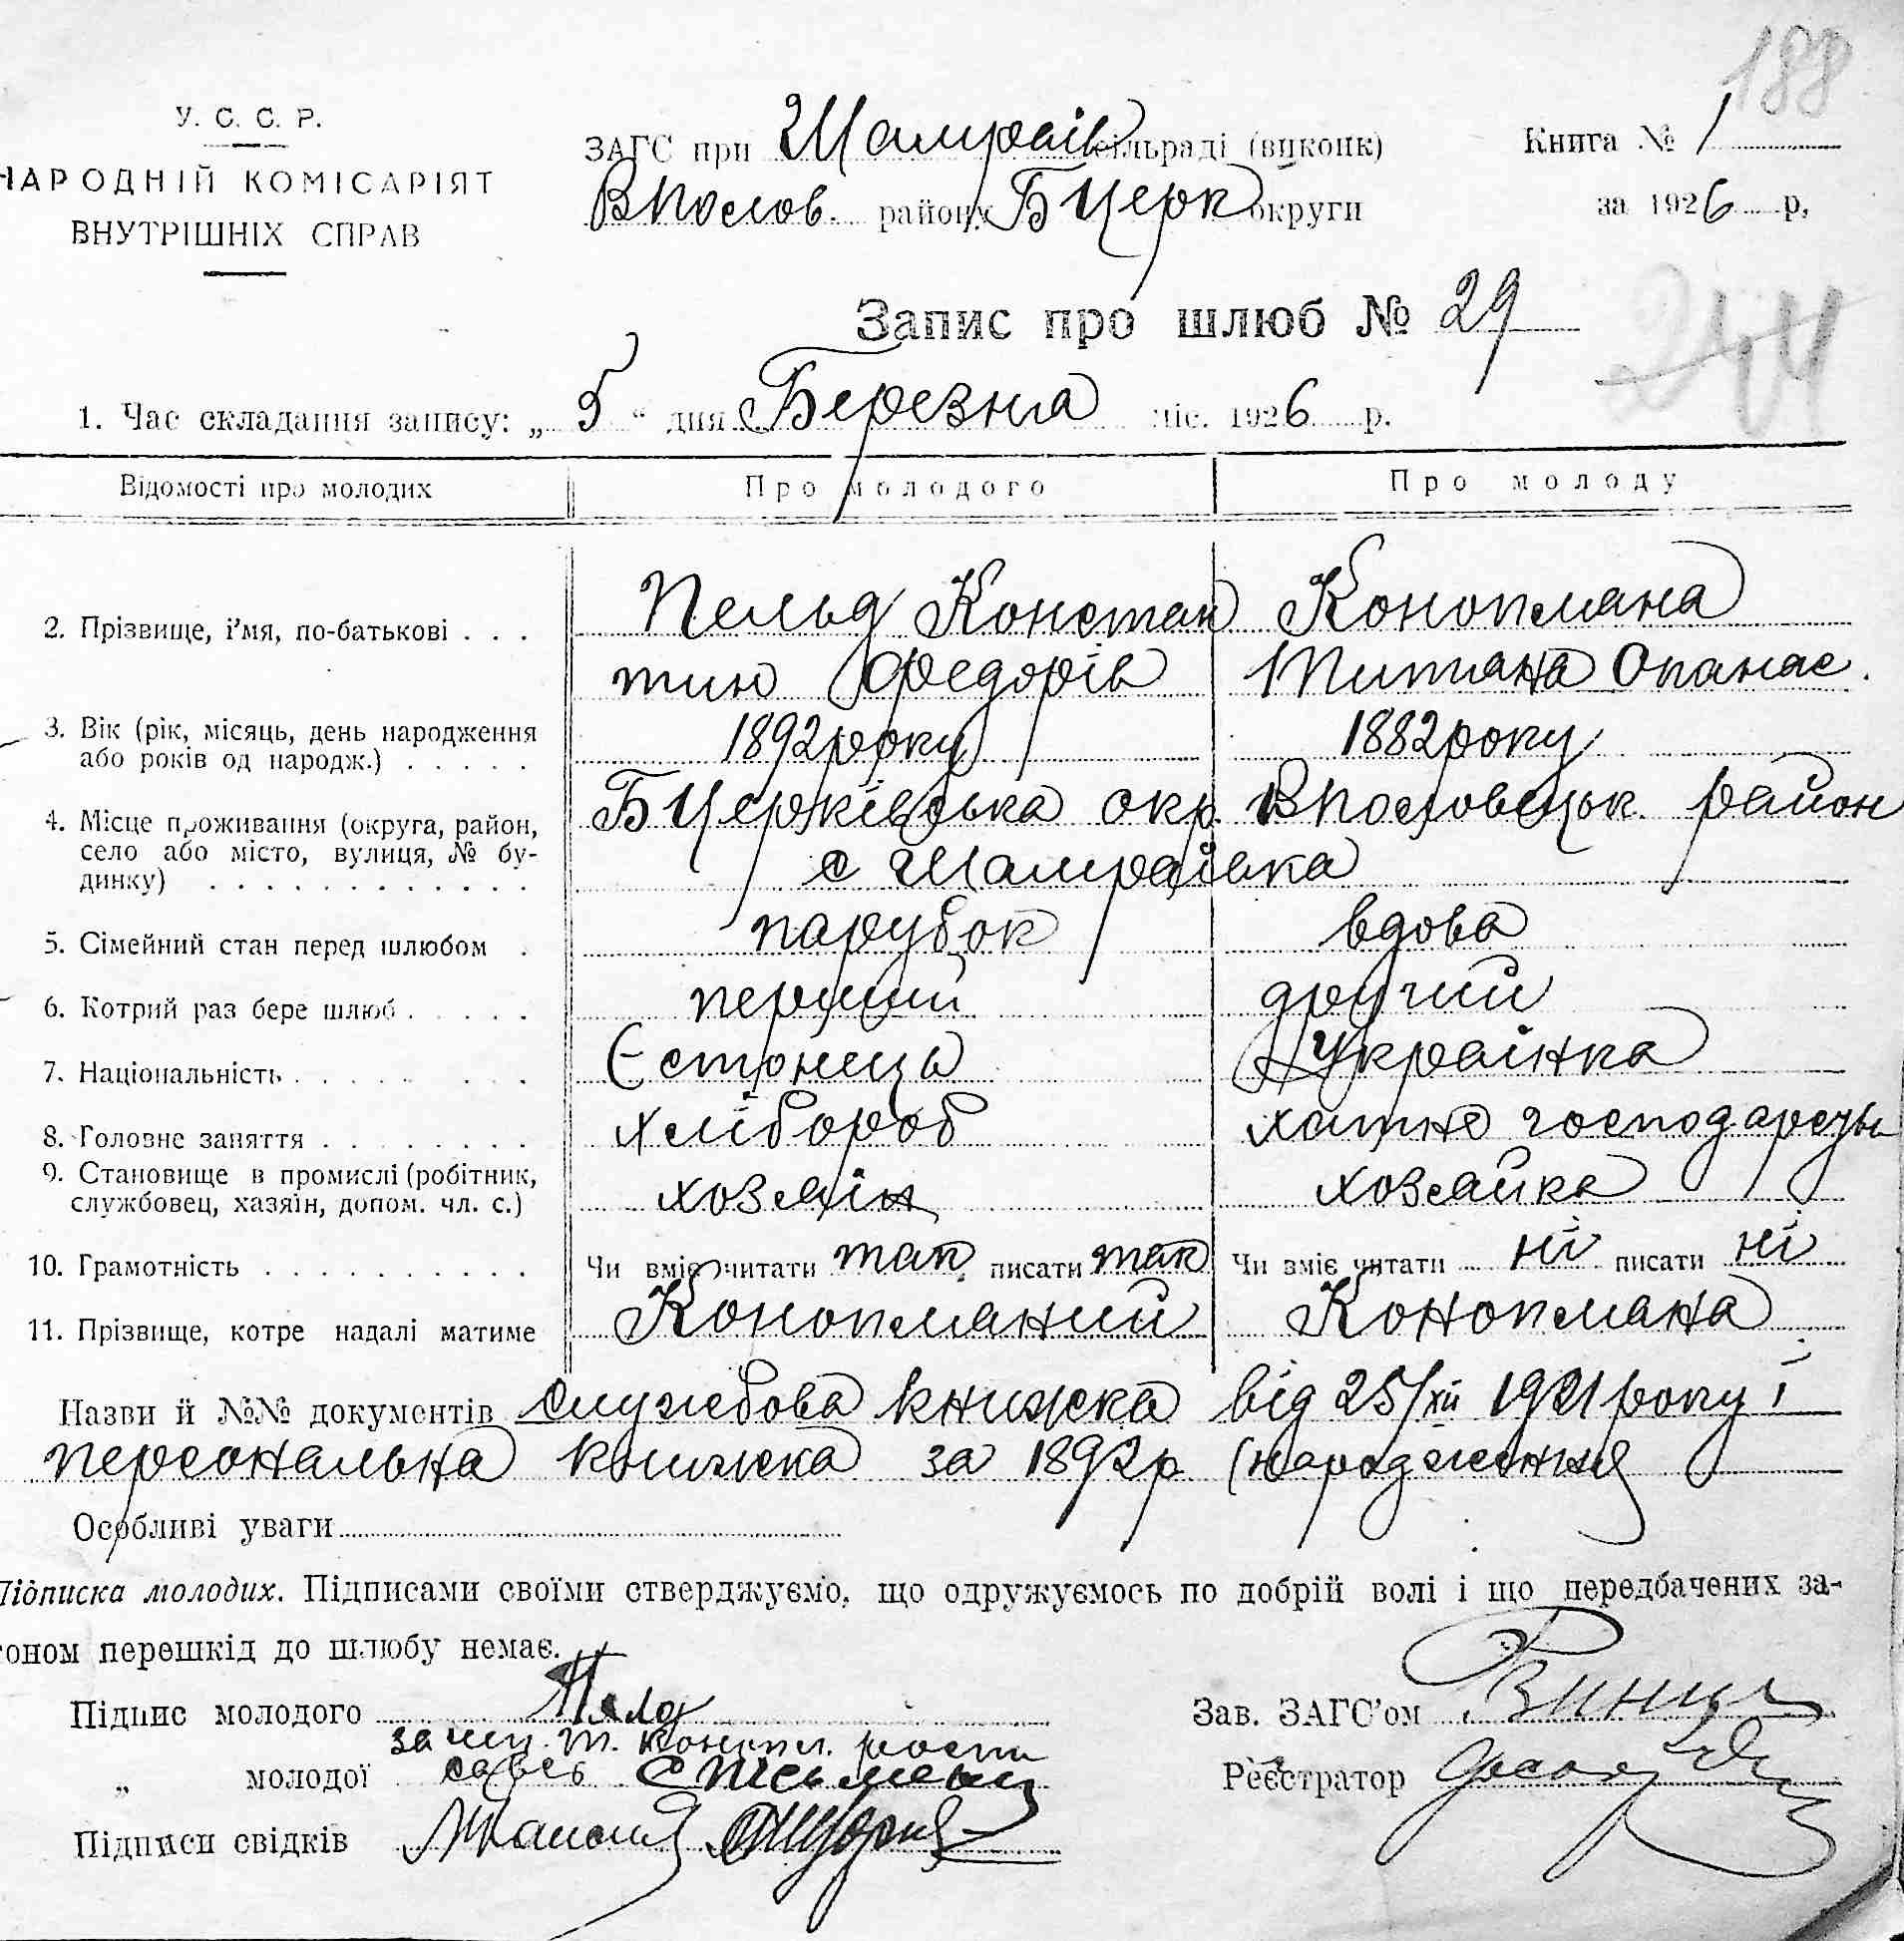 188
У. С. С. Р.
НАРОДНІЙ КОМІСАРІЯТ
ВНУТРІШНІХ СПРАВ
ЗАГС при Шамраїв сільраді (виконк)
ВПолов. району БЦерк округи
Книга № 1
за 1926 р,
Запис про шлюб № 29
244
1. Час складання запису: „ 5 “ дня Березня міс. 1926 р.
Відомості про молодих Про молодого Про молоду
2. Прізвище, і’мя, по-батькові . . . Пельд Констан Конопляна
тин Федорів Титяна Опанас.
3. Вік (рік, місяць, день народження 1892 року 1882 року
або років од народж.) . . . . .
4. Місце проживання (округа, район, БЦерківська окр. ВПоловецьк. район
село або місто, вулиця, № бу- с Шамраївка
динку) . . . . . . . . . . . .
5. Сімейний стан перед шлюбом . парубок вдова
6. Котрий раз бере шлюб . . . . . перший другий
7. Національність . . . . . . . . Єстонець Українка
8. Головне заняття . . . . . . . . хлібороб хатнє господарець
9. Становище в промислі (робітник, хозяїн хозяйка
службовец, хазяїн, допом. чл. с.)
10. Грамотність . . . . . . . . . . Чи вміє читати так писати так Чи вміє читати ні писати ні
11. Прізвище, котре надалі матиме Конопляний Конопляна
Назви й №№ документів службова книжка від 25/XII 1921 року і
персональна книжка за 1892 р (народження
Особливі уваги
Підписка молодих. Підписами своїми стверджуємо, що одружуємось по добрій волі і що передбачених за-
коном перешкід до шлюбу немає.
Підпис молодого Пелд
Зав. ЗАГС’ом
„ молодої
Реєстратор
Підписи свідків